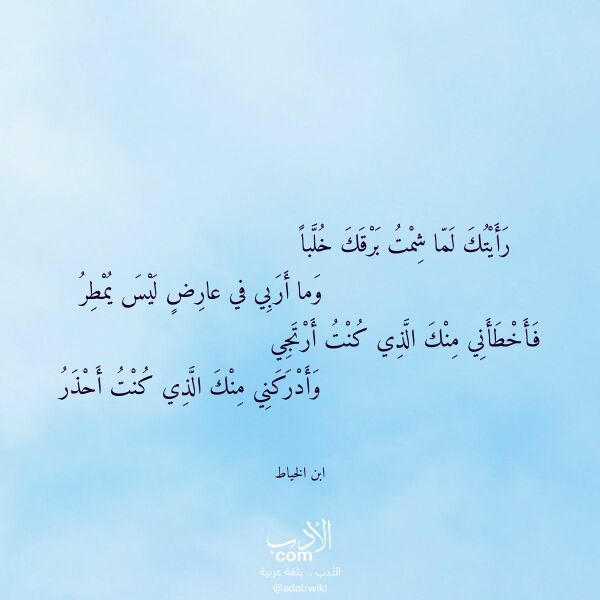 رَأَيْتُكَ لَمّا شِمْتُ بَرْقَكَ خُلَّباً
وَما أَرَبِي في عارِضٍ لَيْسَ يُمْطِرُ
فَأَخْطَأَنِي مِنْكَ الَّذِي كُنْتُ أَرْتَجِي
وَأَدْرَكَنِي مِنْكَ الَّذِي كُنْتُ أَحْذَرُ
ابن الخياط
الأدب
com
الأدب .. بلغة عربية
@adabwiki